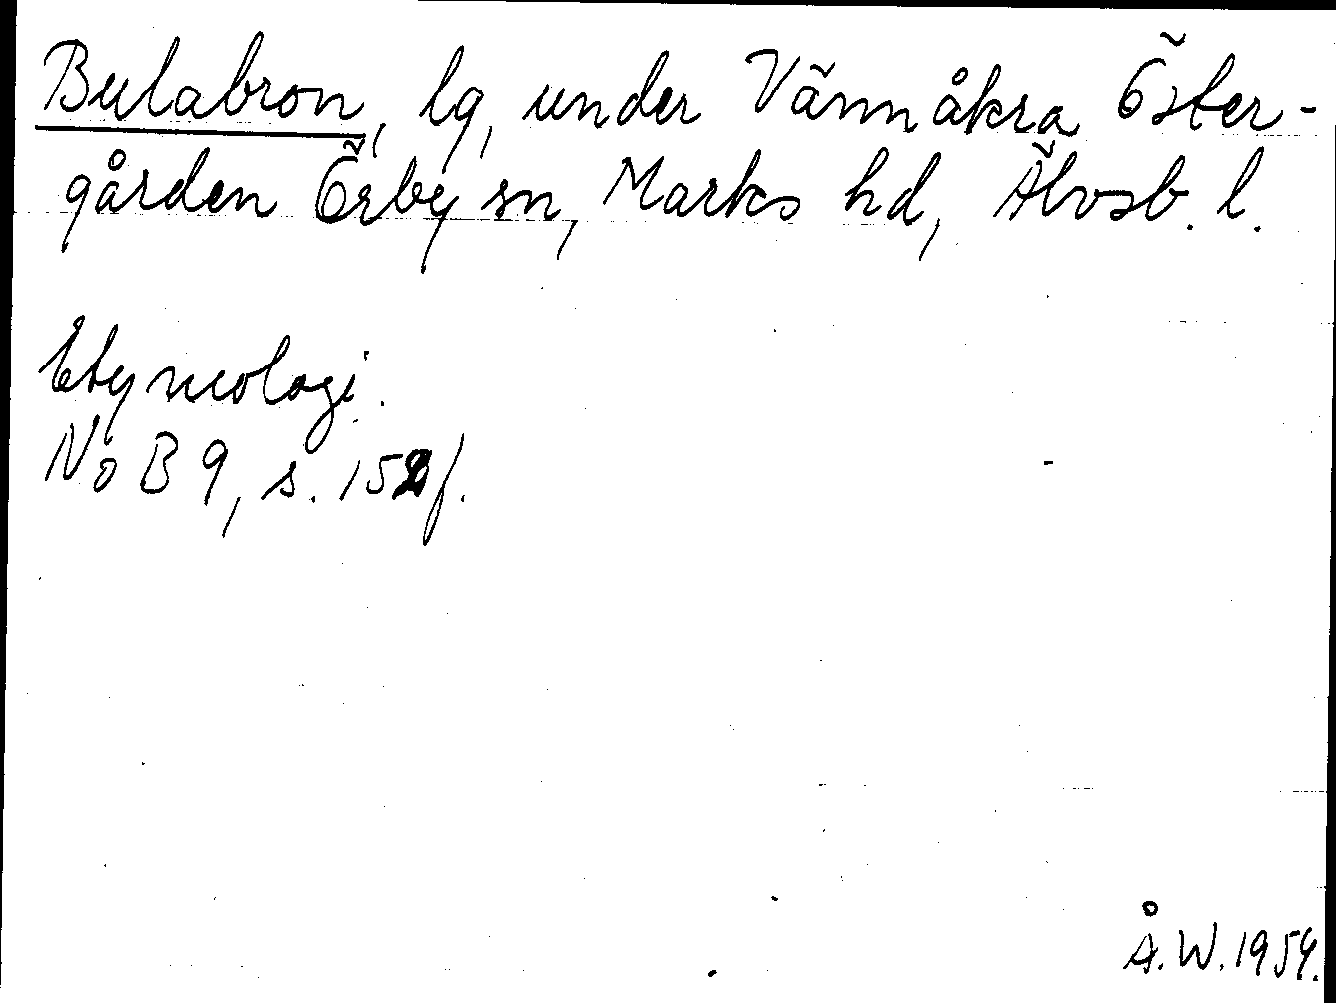 Bulabron, lg, under Vännåkra Öster-
gården Örby sn, Marks hd, Älvsb. l.
Etymologi.
NoB 9, s. 152 f.
Å.W. 1954.